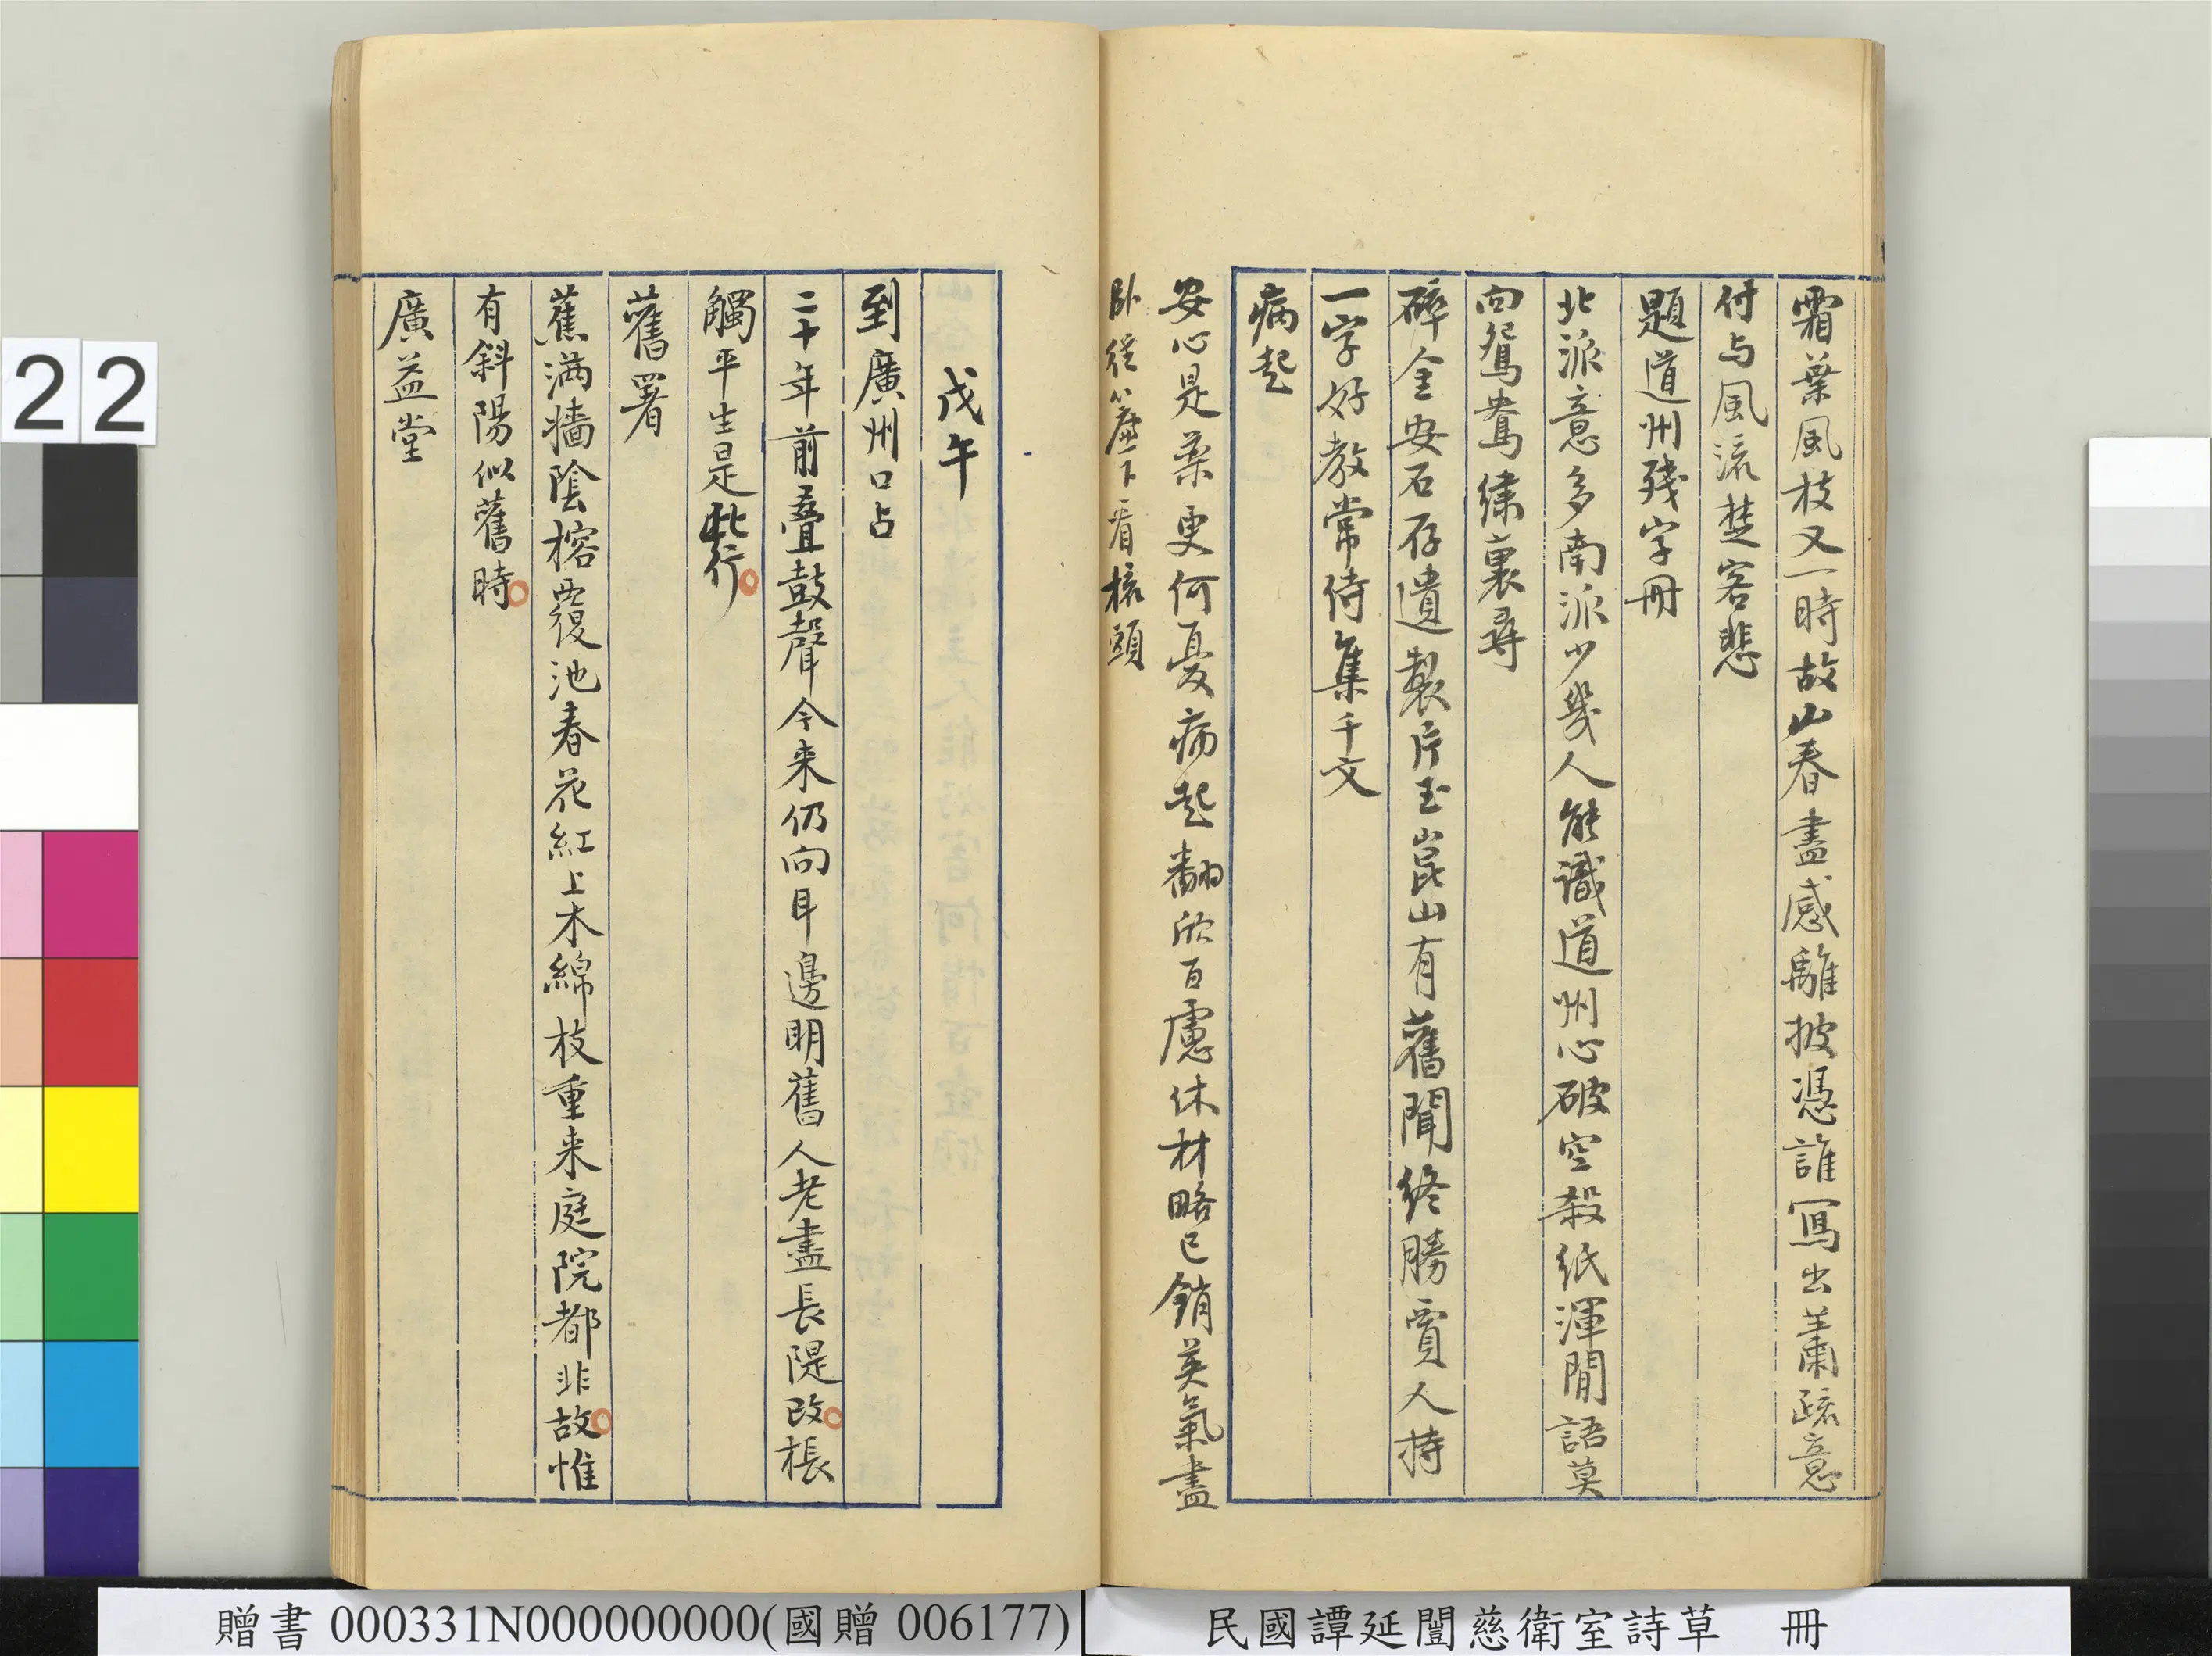 霜葉風枝又一時故山春盡感離披憑誰寫出蕭疏意
付与風流楚客悲
題道州殘字冊
北派意多南派少幾人能識道州心破空殺紙渾閒語莫
向鴛鴦繡裏尋
碎金安石存遺製片玉崑山有舊聞終勝賈人持
一字好教常侍集千文
病起
安心是藥更何憂病起翻欣百慮休材略已銷英氣盡
臥從簾下看梳頭
戊午
到廣州口占
二十年前疊鼓聲今来仍向耳邊明舊人老盡長隄改棖
觸平生是此行
舊署
蕉满牆陰榕覆池春花紅上木綿枝重来庭院都非故惟
有斜陽似舊時
廣益堂
22
贈書 000331N000000000(國贈 006177)
民國譚延闓慈衛室詩草 冊